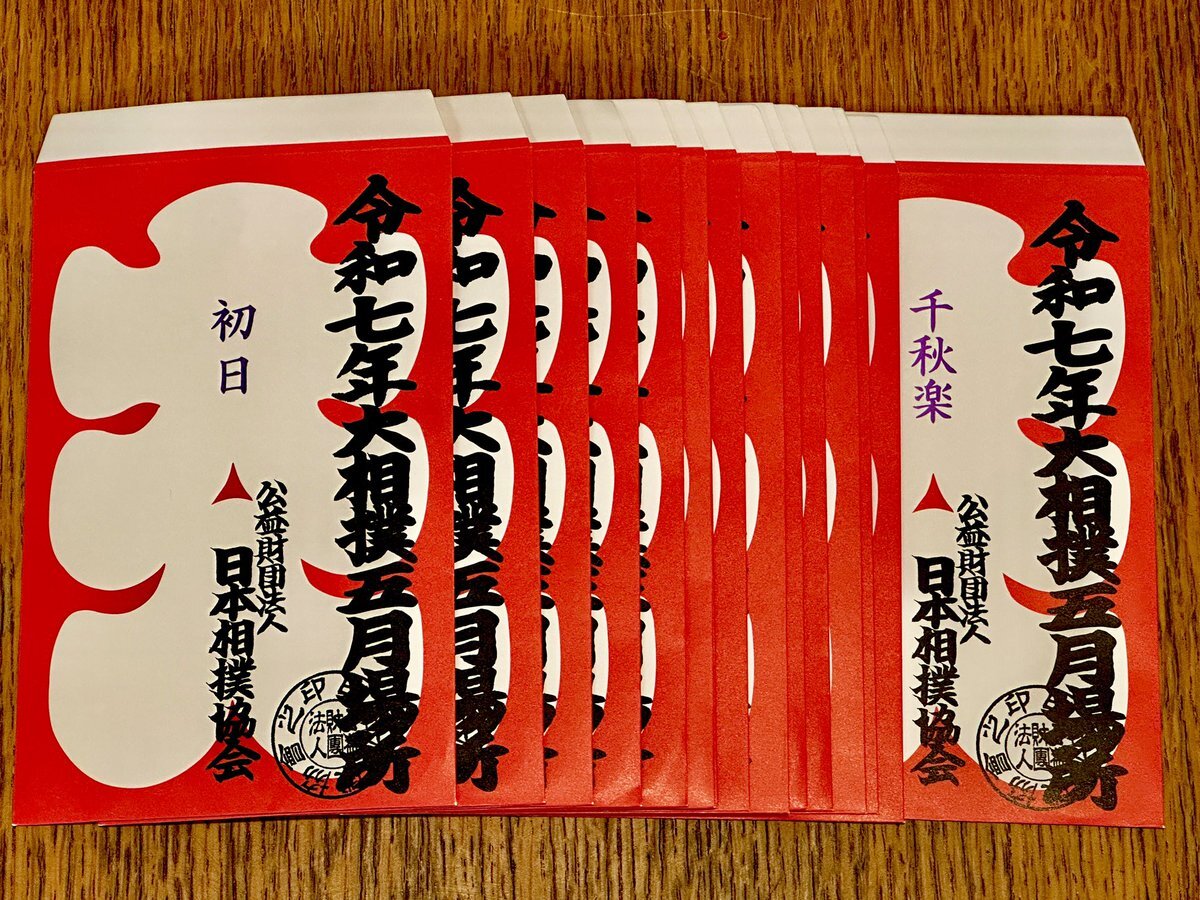 令和七年大相撲五月場所
初日
公益財団法人
日本相撲協会
令和七年大相撲五月場所
令和七年大相撲五月場所
千秋楽
公益財団法人
日本相撲協会